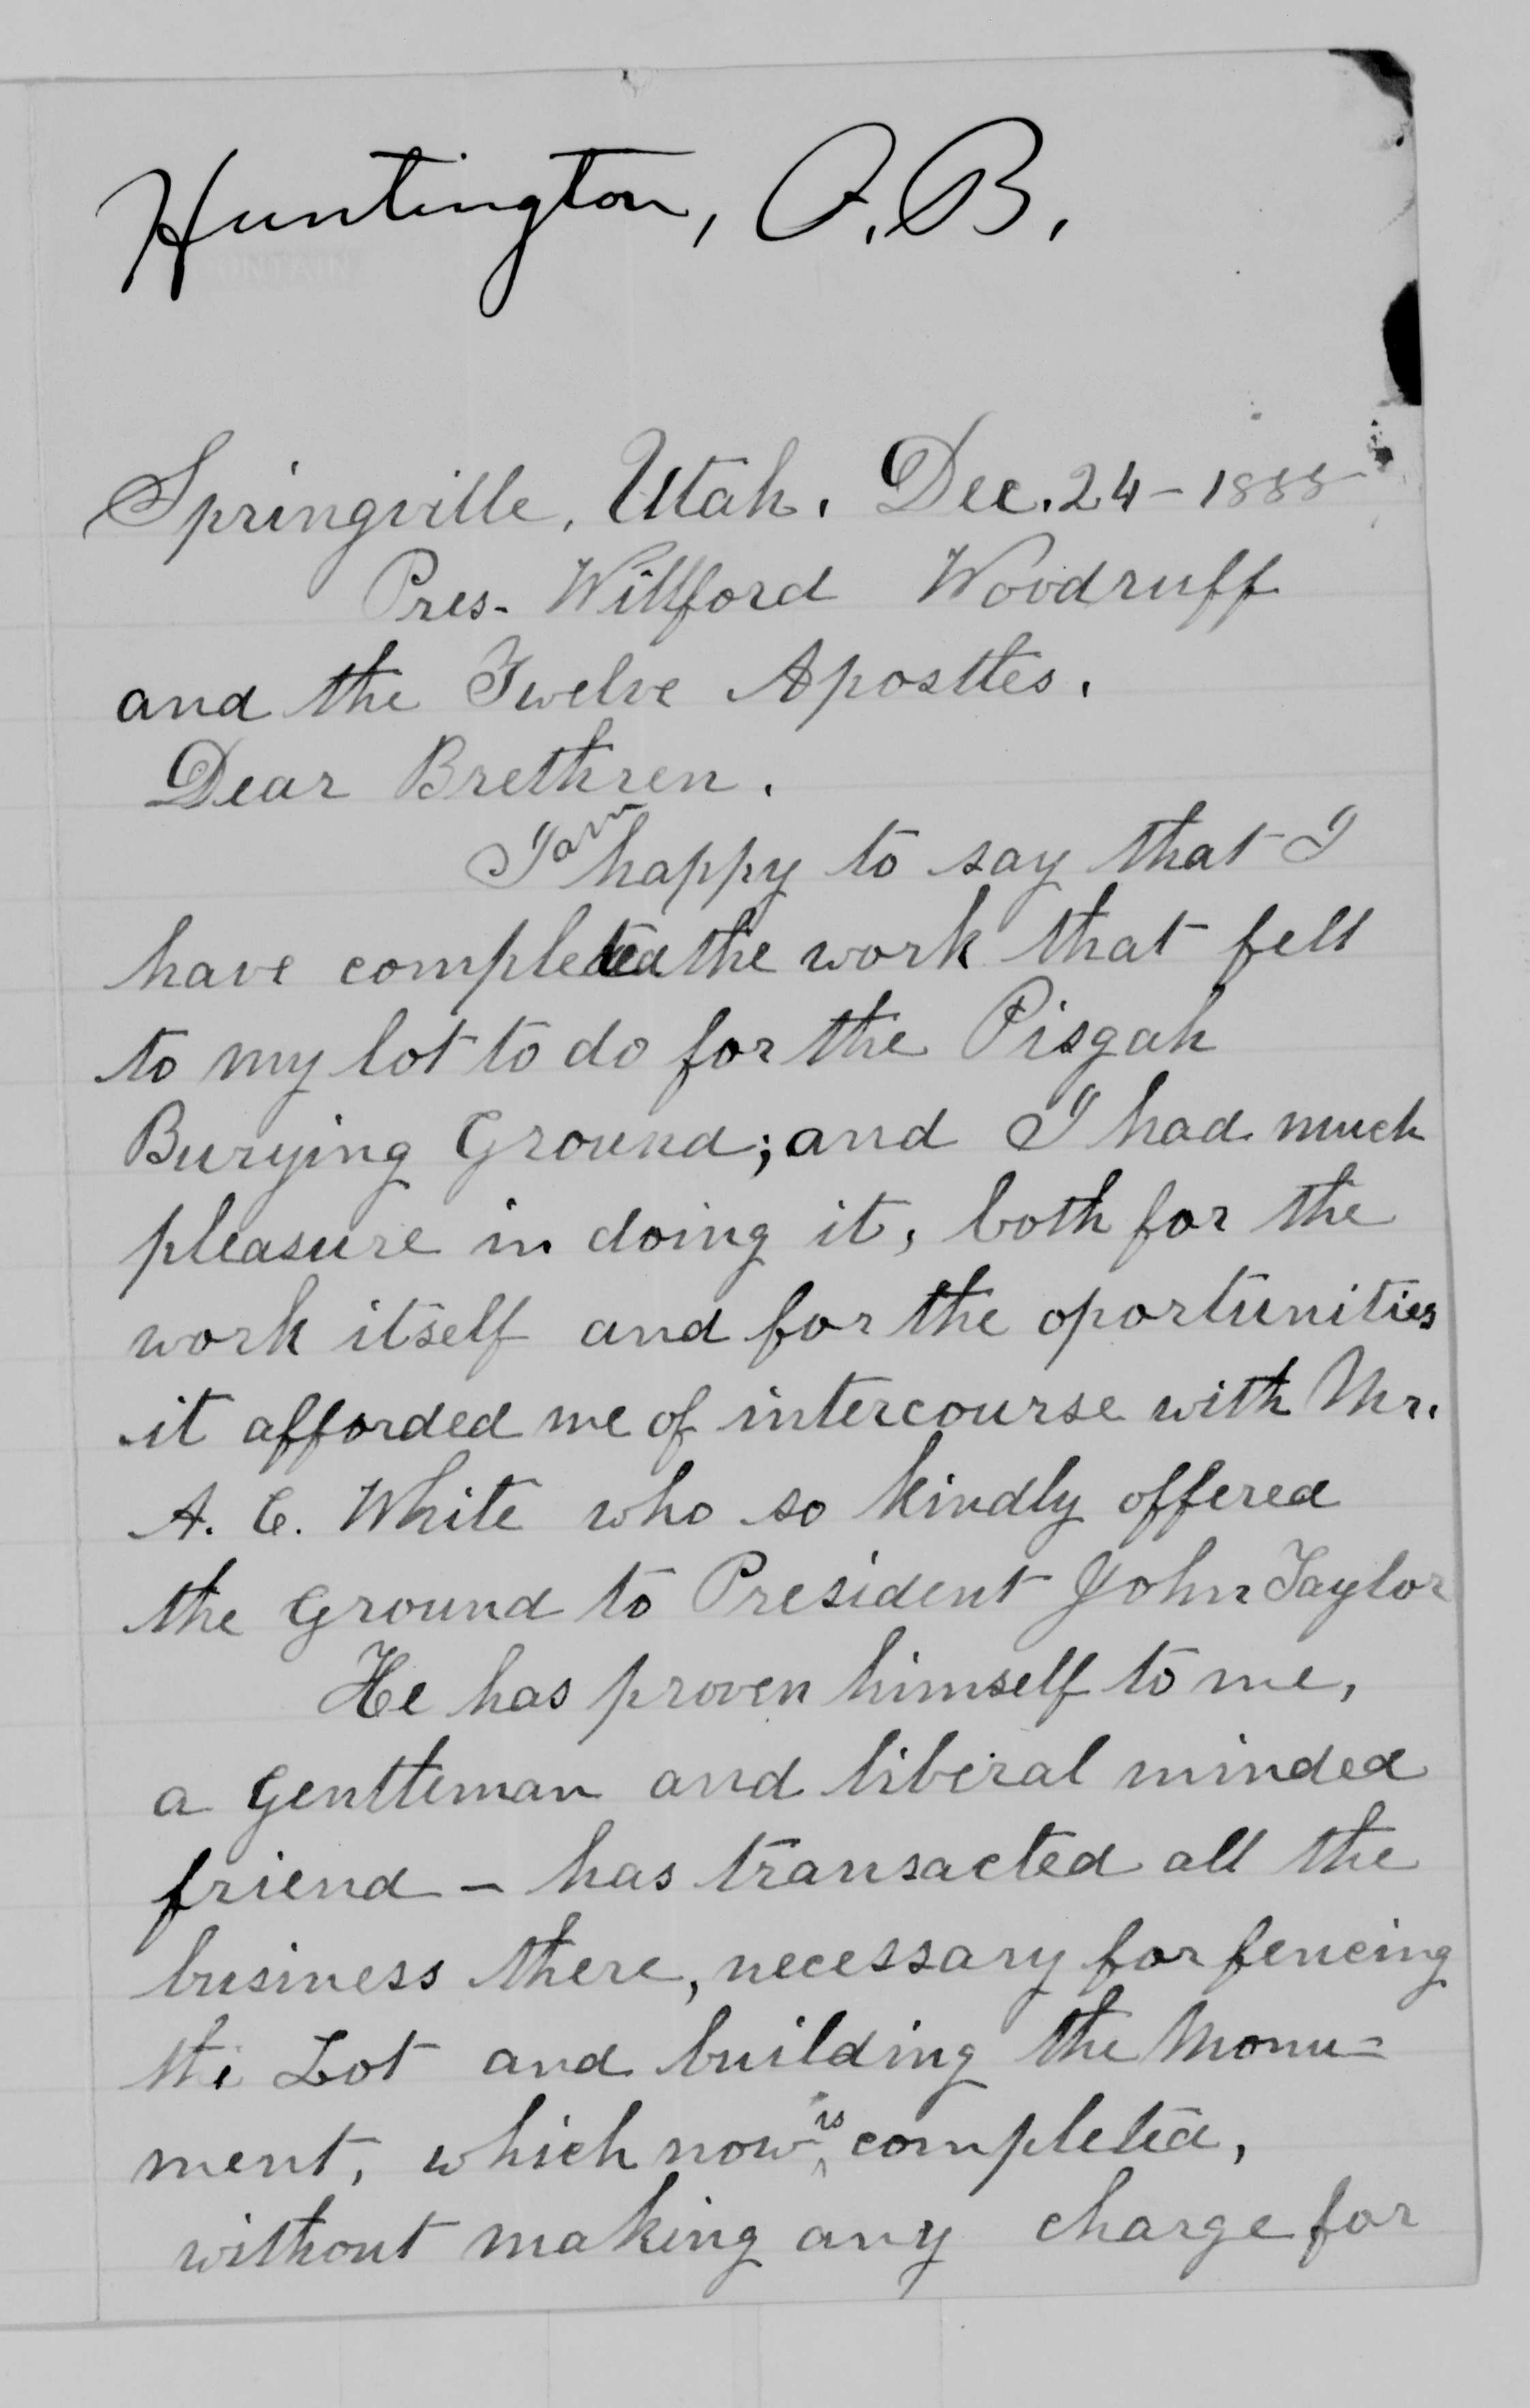 Huntington, O.B.
Springville, Utah. Dec. 24 - 1888
Pres- Willford Woodruff
and the Twelve Apostles.
Dear Brethren.
I am happy to say that I
have completed the work that fell
to my lot to do for the Pisgah
Burying Ground; and I had much
pleasure in doing it, both for the
work itself and for the oportunities
it afforded me of intercourse with Mr.
A. C. White who so kindly offered
the Ground to President John Taylor
He has proven himself to me,
a Gentleman and liberal minded
friend - has transacted all the
business there, necessary for fencing
the Lot and building the Monu=
ment, which now is completed,
without making any charge for